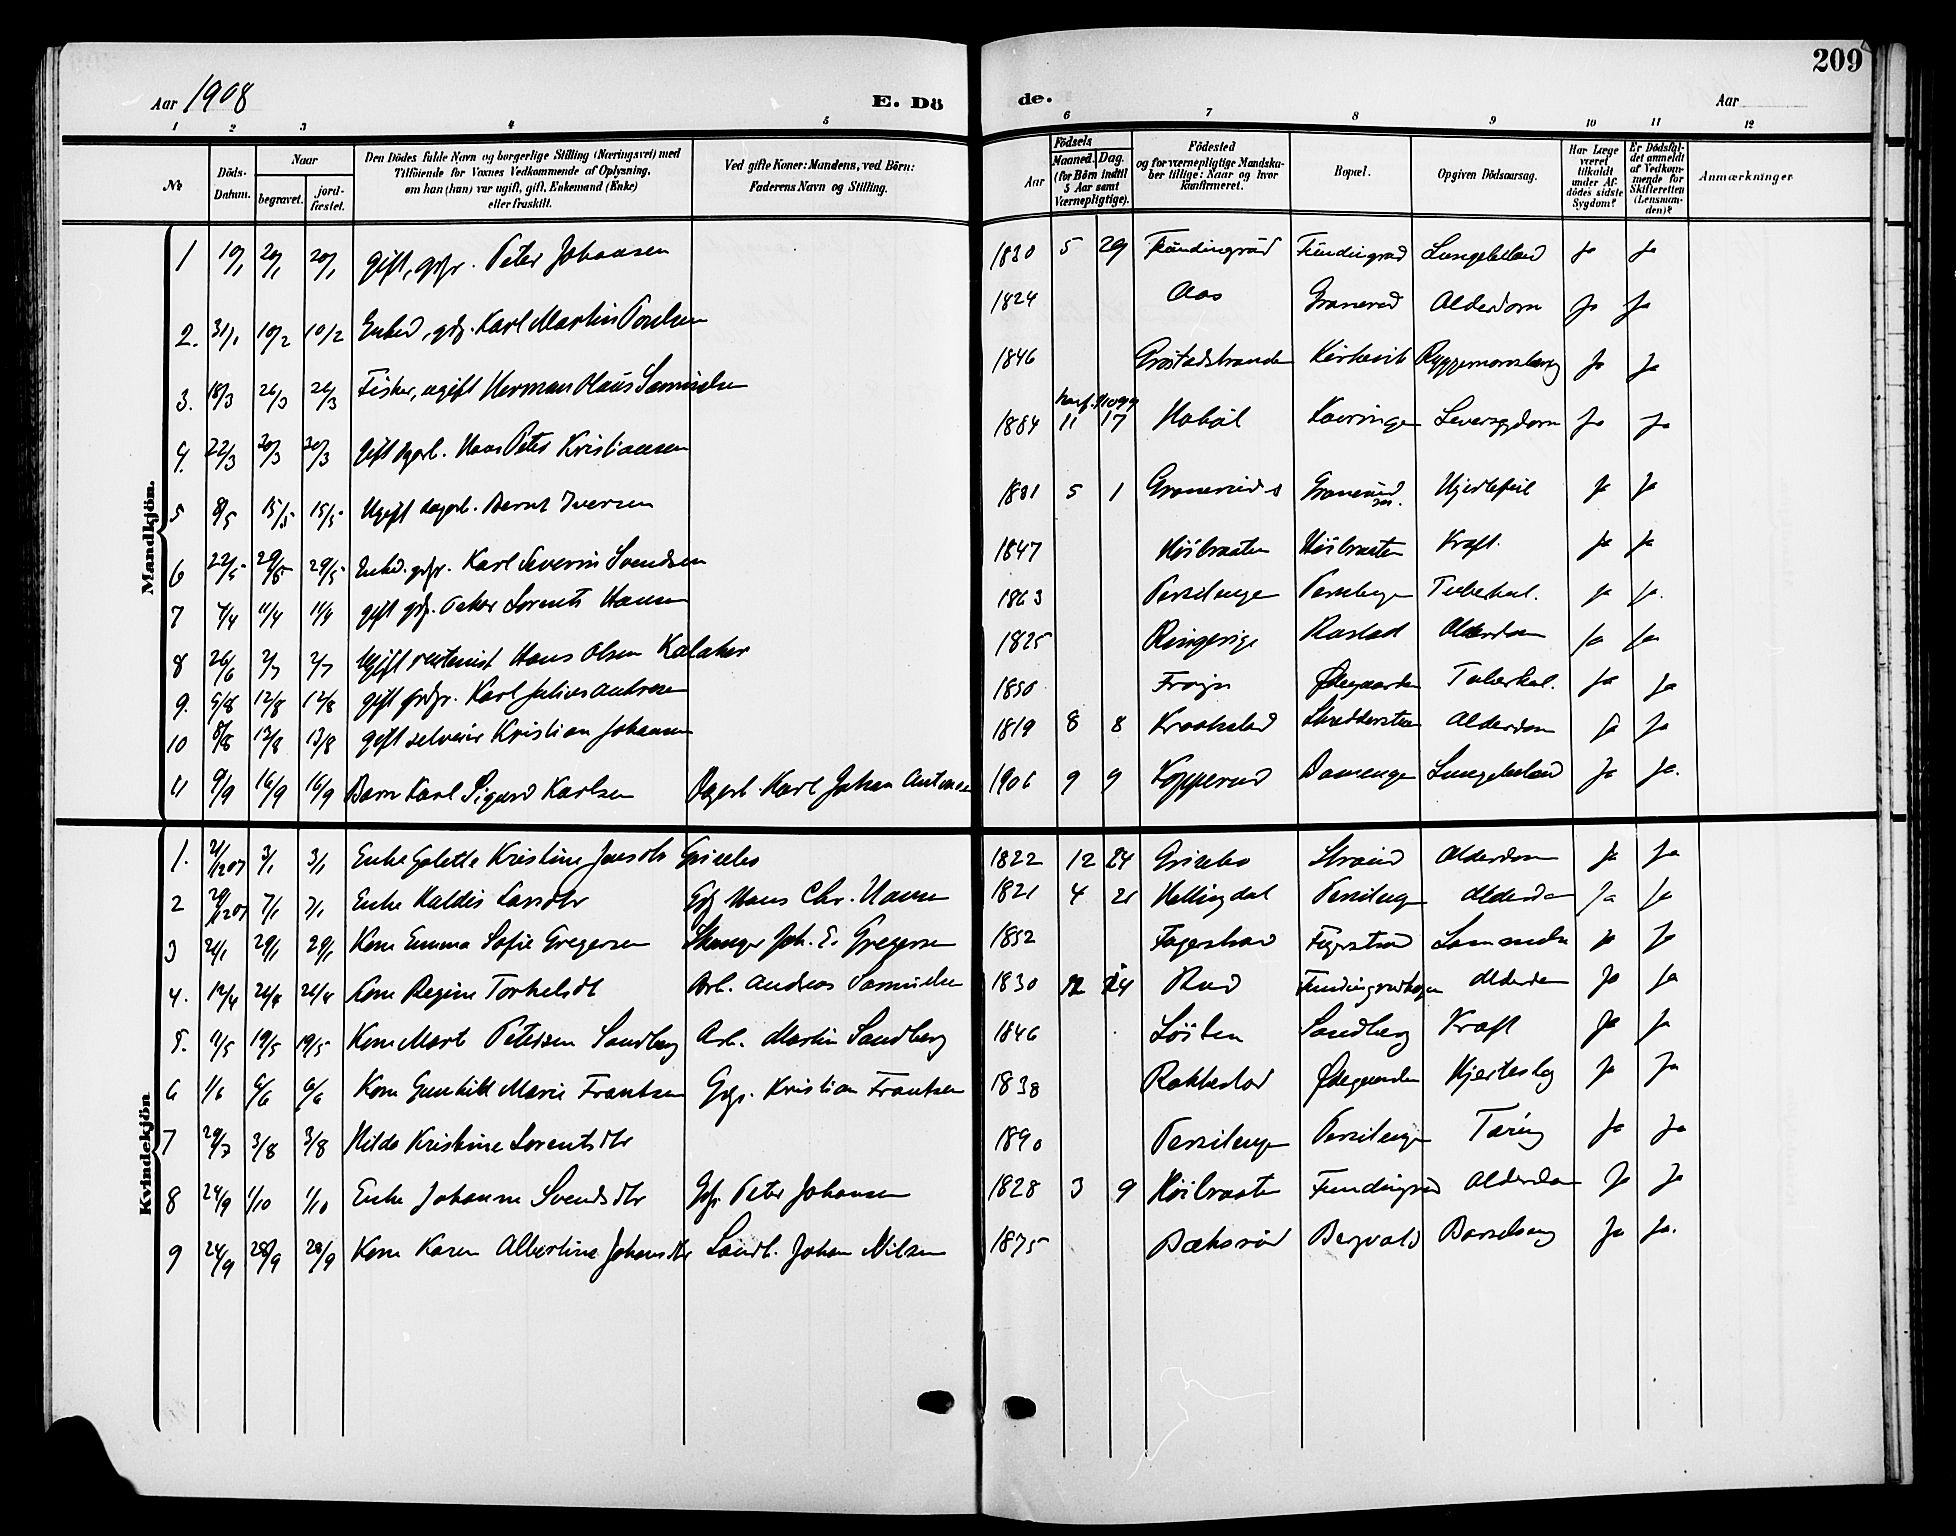 209
Aar 1908
E. Dö
de.
Aar
1 2 3 4 5 6 7 8 9 10 11 12
No
Döds-Datum.
Naar
begravet.
jord-fæstet.
Den Dödes fulde Navn og borgerlige Stilling (Næringsvei) med
Tilföiende for Voxnes Vedkommende af Oplysning,
om han (hun) var ugift, gift, Enkemand (Enke)
eller fraskilt.
Ved gifte Koner: Mandens, ved Börn:
Faderens Navn og Stilling.
Födsels
Aar
Maaned. Dag.
(for Börn indtil
5 Aar samt
Værnepligtige).
Födested
og for værnepligtige Mandska-
ber tillige: Naar og hvor
konfirmeret.
Bopæl.
Opgiven Dödsaarsag.
Har Læge
været
tilkaldt
under Af-
dödes sidste
Sygdom?
Er Dödsfal-
det anmeldt
af Vedkom-
mende for
Skifteretten
(Lensman-
den)?
Anmærkninger
Mandkjön.
1 10/1 20/1 20/1 gift, grdr. Peter Johansen 1830 5 29 Fundingrud Lungebetænd Ja Ja
2. 31/1 10/2 10/2 Enkem, Karl Martin Poulsen 1824 Aas Granerud Alderdom Ja Ja
3. 18/3 26/3 26/3 Fisker, ugift Herman Olaus Samuelsen 1846 Kirkevik Ja Ja
4. 22/3 30/3 30/3 gift dgarb. Hans Peter Kristiansen 1884 11 17 Hobøl Leversygdom Ja Ja
5 8/5 15/5 15/5 Ugift dagarb. Bernt Iversen 1881 5 1 Hjertefeil Ja Ja
6 22/5 29/5 29/5 Karl Severin Svendsen 1847 Høibraaten Høibraaten Kræft. Ja Ja
7 4/4 11/4 11/4 gift Oskar Lorents Hansen 1863 Perslengen Perslengen Tuberkul. Ja Ja.
8 26/6 2/7 2/7 Ugift Hans Olsen 1825 Ringerige Alderdom Ja Ja
9. 5/8 12/8 12/8 gift grdr. Karl Julius Andresen 1850 Frogn Ødegaarden Tuberkul. Ja Ja
10 8/8 13/8 13/8 gift selveier Kristian Johansen 1819 8 8 Kraakstad Alderdom Ja Ja
11 9/9 16/9 16/9 Barn Karl Sigurd Karlsen Dagarb. Karl Johan Antonsen 1906 9 9 Kopperud Damengen Lungebetænd Ja Ja.
Kvindekjön
1. 21/12 07 3/1 3/1 Enke Golette Kristine Jensdtr Grisebo 1822 12 24 Grisebo Strand Alderdom Ja Ja
2 29/12 07 7/1 7/1 Enke Haldis Larsdtr Hans Chr. Hansen 1821 4 21 Hallingdal Perslengen Alderdom Ja Ja
3 24/1 29/1 29/1 Kone Emma Sofie Gregersen Joh. E. Gregersen 1852 Fagerstrand Fagerstrand Ja Ja
4. 12/4 21/4 21/4 Kone Regine Torkelsdt Arb. Andreas Samuelsen 1830 12 24 Rud Alderdom Ja Ja
5. 11/5 19/5 19/5 Kone Petersen Sandberg Arb. Martin Sandberg 1846 Løiten Sandberg Kræft Ja Ja
6 1/6 6/6 6/6 Kone Gunhild Marie Frantsen Kristian Frantsen 1838 Rakkestad Ødegaarden Hjerteslag Ja Ja
7 29/7 3/8 3/8 Hilda Kristine Lorentsdtr 1890 Perslengen Perslengen Tæring Ja Ja
8 24/9 1/10 1/10 Enke Johanne Svendsdtr Peter Johansen 1828 3 9 Høibraaten Fundingrud Alderdom Ja Ja
9 24/9 28/9 28/9 Kone Karen Albertine Johansdtr Johan Nilsen 1875 Bergvold Barselseng Ja Ja.